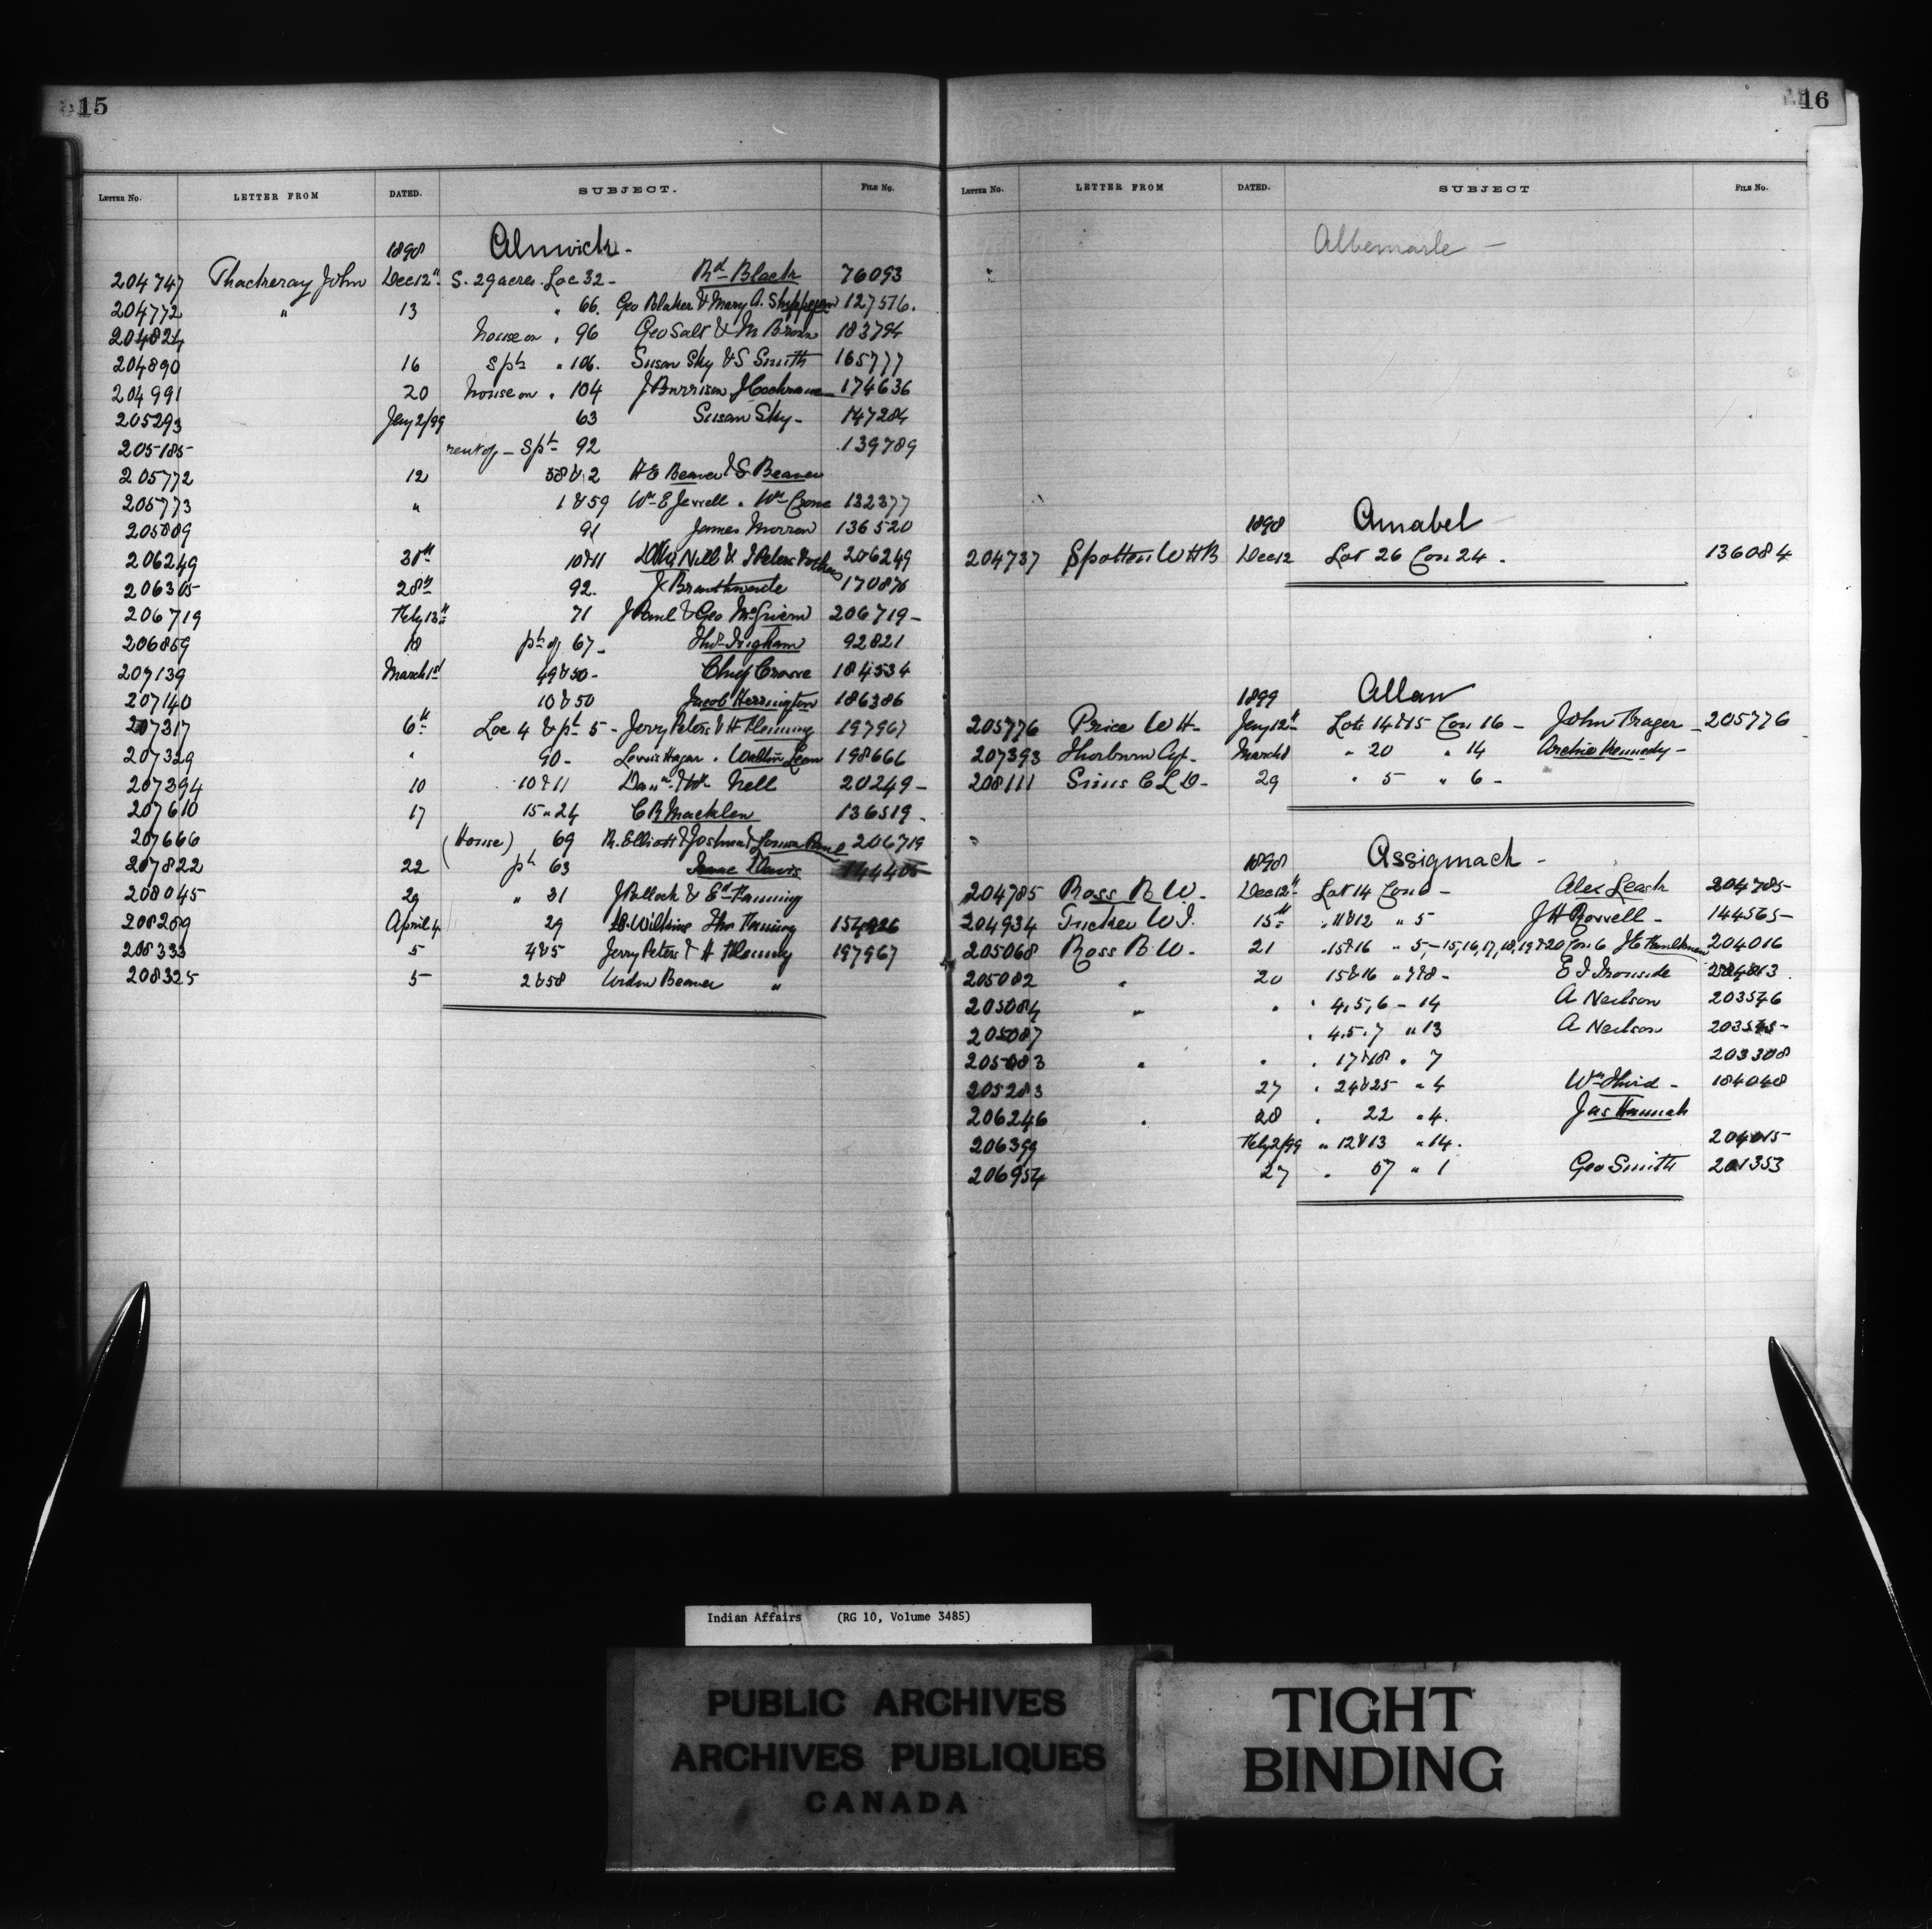 15
LETTER No. LETTER FROM DATED. SUBJECT. FILE No.
1898 Alnwick -
204747 Thackeray John Dec 12" S. 29 acres. Loc 32 - Rd Black 76093
204772 " 13 " 66. Geo Blaker & Mary A. 127516.
204824 house on . 96 Geo Salt & M Brown 183794
204890 16 S pt " 106. Susan Sky & S Smith 165777
204991 20 house on . 104 J Burrison J Cochrane 174636
205293 Jany 2/99 63 Susan Sky - 147284
205185 rent of - S pt 92 139789
205772 12 58 & 2 H E Beaver & S Beaver
205773 " 1 & 59 Wm E Jerrell . Wm Crowe 132377
205809 91 James Morrow 136520
206249 30th 10 & 11 Nell & J Peters & others 206249
206305 28th 92. J Branthwaite 170876
206719 Feby 13th 71 J Paul & Geo 206719 -
206859 18 pt of 67 - Thos Ingham 92821
207139 March 1st 49 & 50 - Chief Crowe 184534
207140 10 & 50 Jacob Herrington 186386
207317 6th Loc 4 & pt 5 - Jerry Peters & H Fleming 197967
207329 " 90 - Lewis Hagar . 198666
207394 10 10 & 11 Nell 20249 -
207610 17 15 " 24 C R Macklen 136519 -
207666 (House) 69 R. Elliott & Joshua & Louisa Paul 206719
207822 22 pt 63 Isaac Davis 144405
208045 29 " 31 J Pollock & Ed Fanning
208289 April 4 29 D. Wilkins Thos Fanning 154926
208333 5 4 & 5 Jerry Peters & H Fleming 197967
208325 5 2 & 58 Widow Beaver "
16
LETTER No. LETTER FROM DATED. SUBJECT FILE No.
Albemarle -
1898 Amabel -
204737 Spotten W H B Dec 12 Lot 26 Con 24 . 136084
1899 Allan
205776 Price W H - Jany 12th Lots 14 & 15 Con 16 - John Brager - 205776
207393 Thorburn March 8 " 20 " 14 Archie Kennedy -
208111 Sims C L D - 29 " 5 " 6 -
1898 Assiginack -
204785 Ross B W - Dec 12th Lot 14 Con 6 - Alex Leask 204785
204934 Tucker W J. 15th . 11 & 12 " 5 J H 144565 -
205068 Ross B W - 21 . 15 & 16 " 5, - 15, 16, 17, 18, 19 & 20 Con 6 J E 204016
205082 " 20 15 & 16 " 7 & 8 - E J Ironside
205084 " " " 4, 5, 6 - 14 A Neilson 203546
205087 . 4. 5. 7 " 13 A Neilson 203545 -
205083 " " . 17 & 18 . 7 203308
205283 27 . 24 & 25 " 4 Wm Hurd - 184048
206246 " 28 . 22 " 4. Jas Hannah
206399 Feby 2/99 " 12 & 13 " 14. 204015
206954 27 . 57 " 1 Geo Smith 201353
Indian Affairs (RG 10, Volume 3485)
PUBLIC ARCHIVES
ARCHIVES PUBLIQUES
CANADA
TIGHT
BINDING